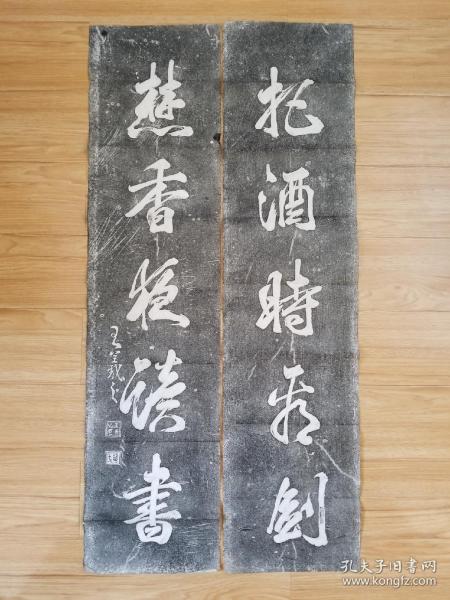 把酒時看劍
焚香夜讀書
王羲之
孔夫子旧书网
www.kongfz.com